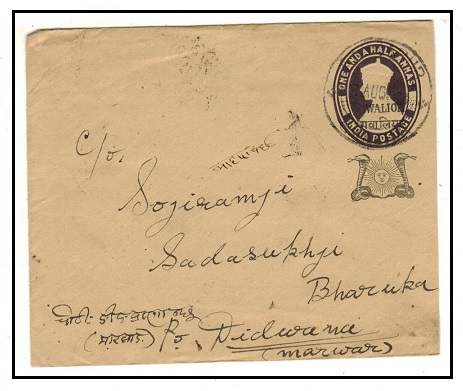 ONE AND A HALF ANNAS
AUG
GWALIOR
ग्वालियर
INDIA POSTAGE
C/o.
Sojiramji
Sadasukhji
Bharuka
(मारवाड़) Po Didwana
(marwar)